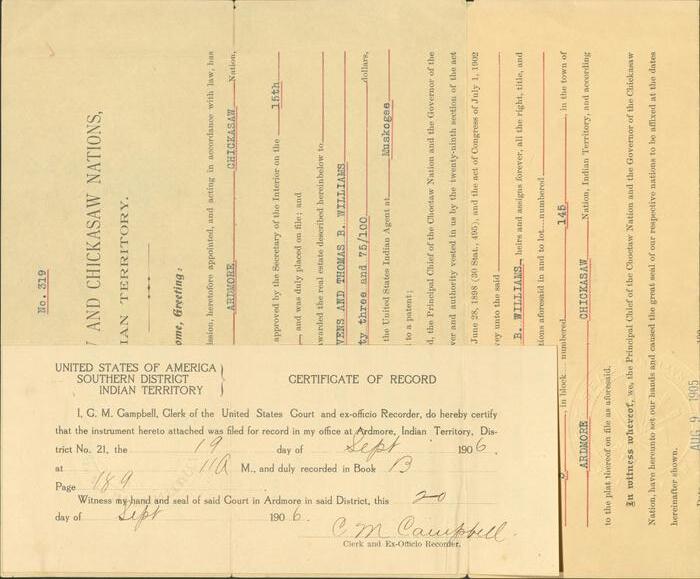 No. 319
Y AND CHICKASAW NATIONS,
IAN TERRITORY.
ome, Greeting:
ission, heretofore appointed, and acting in accordance with law, has
ARDMORE CHICKASAW Nation,
approved by the Secretary of the Interior on the 15th
and was duly placed on file; and
warded the real estate described hereinbelow to
VENS AND THOMAS B. WILLIAMS
ty three and 75/100 dollars,
the United States Indian Agent at Muskogee
to a patent;
d, the Principal Chief of the Choctaw Nation and the Governor of the
ver and authority vested in us by the twenty-ninth section of the act
June 28, 1898 (30 Stat., 495), and the act of Congress of July 1, 1902
vey unto the said
B. WILLIAMS, heirs and assigns forever, all the right, title, and
tions aforesaid in and to lot numbered
, in block numbered 145 in the town of
ARDMORE CHICKASAW Nation, Indian Territory, and according
to the plat thereof on file as aforesaid.
In witness whereof, we, the Principal Chief of the Choctaw Nation and the Governor of the Chickasaw
Nation, have hereunto set our hands and caused the great seal of our respective nations to be affixed at the dates
hereinafter shown.
AUG 9 1905
UNITED STATES OF AMERICA
SOUTHERN DISTRICT
INDIAN TERRITORY
CERTIFICATE OF RECORD
I, C. M. Campbell, Clerk of the United States Court and ex-officio Recorder, do hereby certify
that the instrument hereto attached was filed for record in my office at Ardmore, Indian Territory, Dis-
trict No. 21, the 19 day of Sept 1906.
at 11 A M., and duly recorded in Book B
Page 189
Witness my hand and seal of said Court in Ardmore in said District, this 20
day of Sept 1906.
C M Campbell
Clerk and Ex-Officio Recorder.